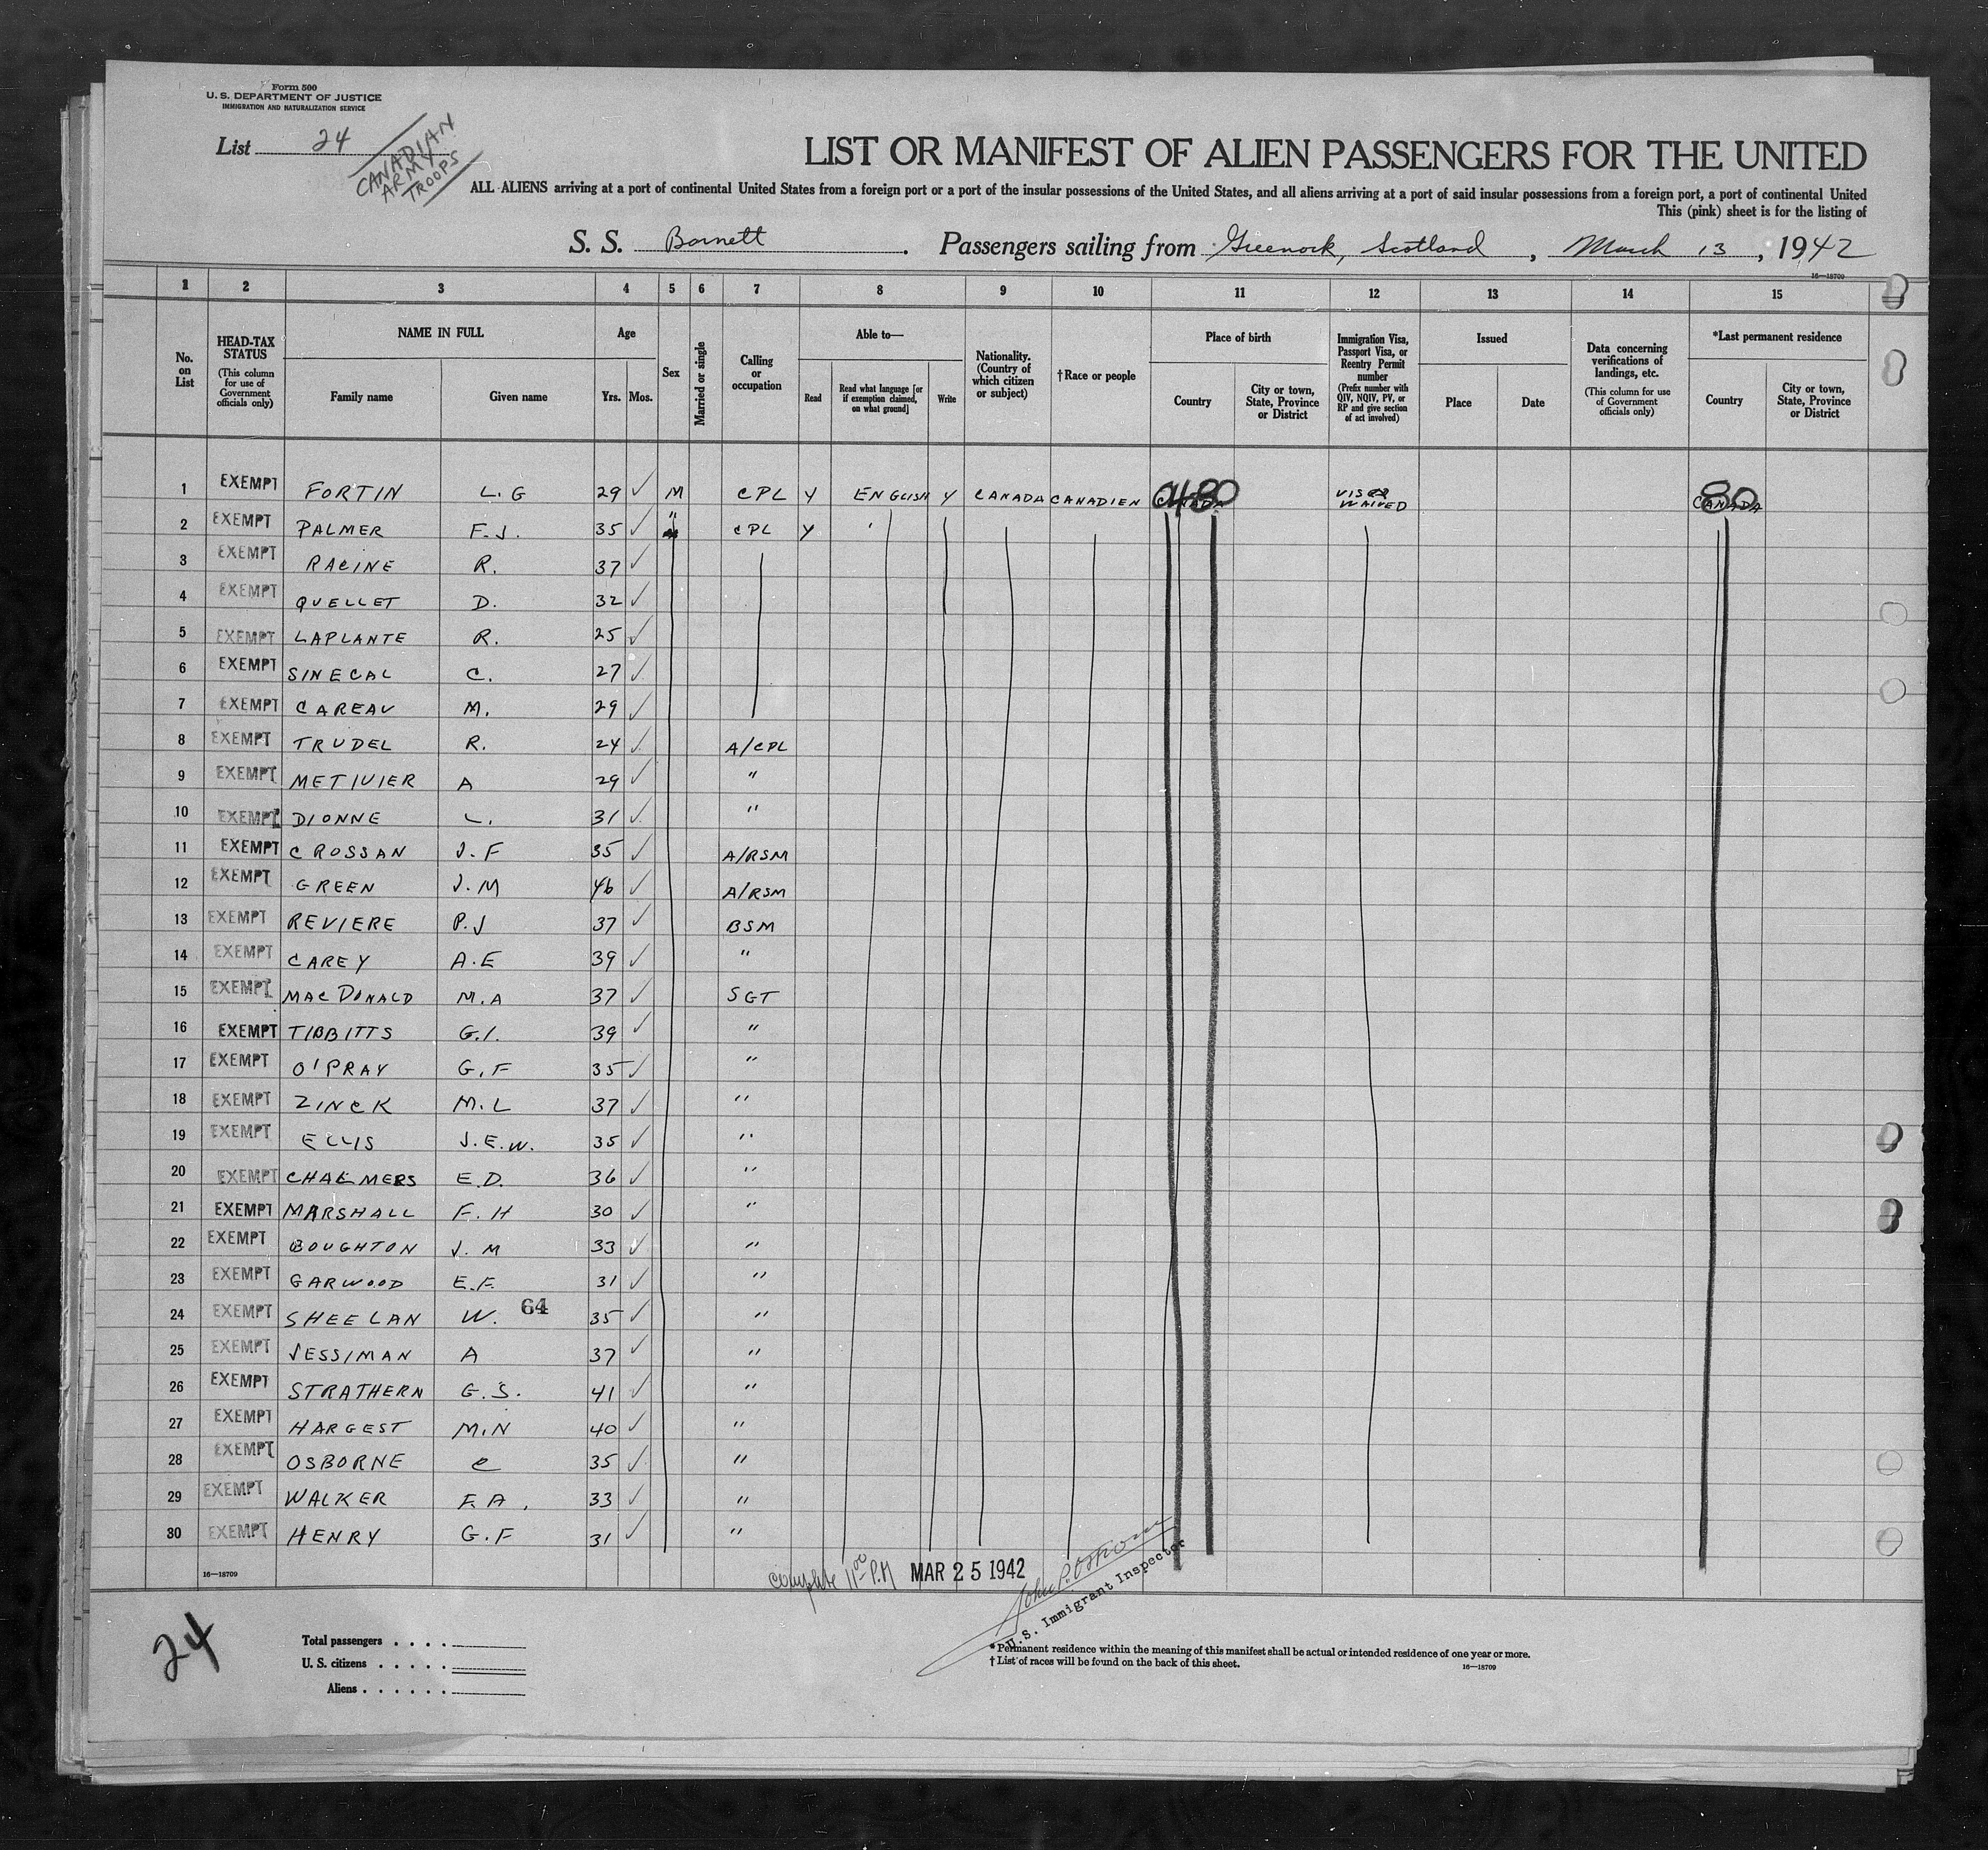 Form 500
U. S. DEPARTMENT OF JUSTICE
IMMIGRATION AND NATURALIZATION SERVICE
List 24
CANADIAN
ARMY
TROOPS
LIST OR MANIFEST OF ALIEN PASSENGERS FOR THE UNITED
ALL ALIENS arriving at a port of continental United States from a foreign port or a port of the insular possessions of the United States, and all aliens arriving at a port of said insular possessions from a foreign port, a port of continental United
This (pink) sheet is for the listing of
S. S. Barnett. Passengers sailing from Greenock, Scotland, March 13, 1942
16—18709
1 2 3 4 5 6 7 8 9 10 11 12 13 14 15
No. on List
HEAD-TAX STATUS (This column for use of Government officials only)
NAME IN FULL Family name Given name
Age Yrs. Mos.
Sex
Married or single
Calling or occupation
Able to— Read Read what language [or if exemption claimed, on what ground] Write
Nationality. (Country of which citizen or subject)
†Race or people
Place of birth Country City or town, State, Province or District
Immigration Visa, Passport Visa, or Reentry Permit number (Prefix number with QIV, NQIV, PV, or RP and give section of act involved)
Issued Place Date
Data concerning verifications of landings, etc. (This column for use of Government officials only)
*Last permanent residence Country City or town, State, Province or District
1 EXEMPT FORTIN L. G 29 ✓ M CPL Y ENGLISH Y CANADA CANADIEN CANADA VISA WAIVED CANADA 80
2 EXEMPT PALMER F. J. 35 ✓ " CPL Y '
3 EXEMPT RACINE R. 37 ✓
4 EXEMPT QUELLET D. 32 ✓
5 EXEMPT LAPLANTE R. 25 ✓
6 EXEMPT SINECAL C. 27 ✓
7 EXEMPT CAREAU M. 29 ✓
8 EXEMPT TRUDEL R. 24 ✓ A/CPL
9 EXEMPT METIVIER A 29 ✓ "
10 EXEMPT DIONNE L. 31 ✓ "
11 EXEMPT CROSSAN J. F 35 ✓ A/RSM
12 EXEMPT GREEN J. M 46 ✓ A/RSM
13 EXEMPT REVIERE P. J 37 ✓ BSM
14 EXEMPT CAREY A. E 39 ✓ "
15 EXEMPT MACDONALD M. A 37 ✓ SGT
16 EXEMPT TIBBITTS G. I. 39 ✓ "
17 EXEMPT O'PRAY G. F 35 ✓ "
18 EXEMPT ZINCK M. L 37 ✓ "
19 EXEMPT ELLIS J. E. W. 35 ✓ "
20 EXEMPT CHALMERS E. D. 36 ✓ "
21 EXEMPT MARSHALL F. H 30 ✓ "
22 EXEMPT BOUGHTON J. M 33 ✓ "
23 EXEMPT GARWOOD E. F. 31 ✓ "
24 EXEMPT SHEELAN W. 64 35 ✓ "
25 EXEMPT JESSIMAN A 37 ✓ "
26 EXEMPT STRATHERN G. S. 41 ✓ "
27 EXEMPT HARGEST M. N 40 ✓ "
28 EXEMPT OSBORNE C 35 ✓ "
29 EXEMPT WALKER F. A. 33 ✓ "
30 EXEMPT HENRY G. F 31 ✓ "
16—18709
complete 11 00 P.M MAR 25 1942
John P.
U.S. Immigrant Inspector
24
Total passengers . . . .
U. S. citizens . . . . .
Aliens . . . . . .
*Permanent residence within the meaning of this manifest shall be actual or intended residence of one year or more.
†List of races will be found on the back of this sheet.
16—18709